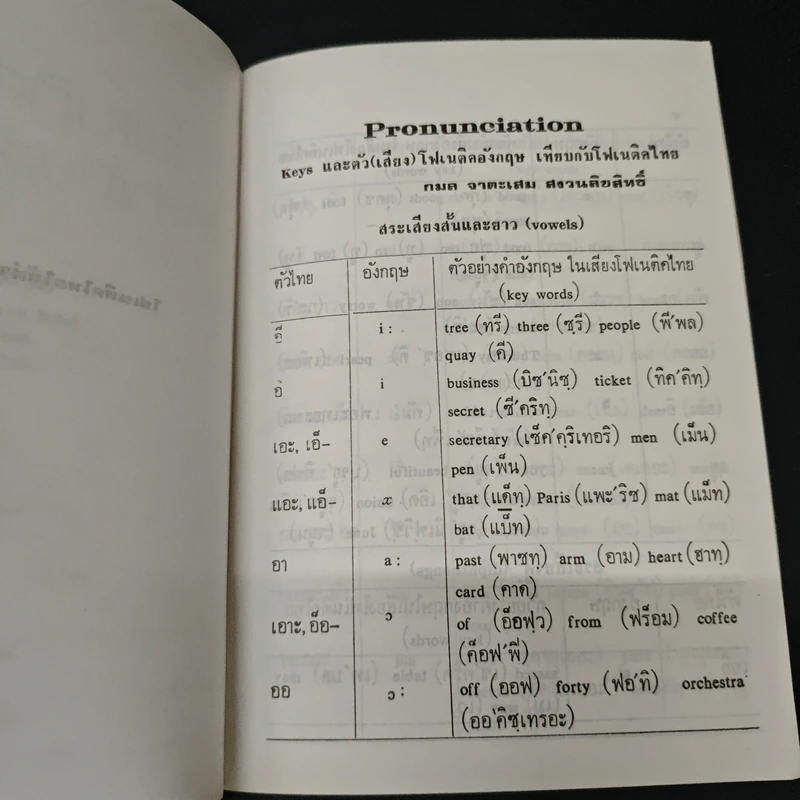 Pronunciation
Keys และตัว(เสียง)โฟเนติคอังกฤษ เทียบกับโฟเนติคไทย
กมล จาตะเสม สงวนลิขสิทธิ์
สระเสียงสั้นและยาว (vowels)
ตัวไทย อังกฤษ ตัวอย่างคำอังกฤษ ในเสียงโฟเนติคไทย
(key words)
อี i: tree (ทรี) three (ซฺรี) people (พี'พล)
quay (คี)
อิ i business (บิซ'นิซฺ) ticket (ทิค'คิทฺ)
secret (ซี'คริทฺ)
เอะ, เอ็- e secretary (เซ็ค'คฺริเทอริ) men (เม็น)
pen (เพ็น)
แอะ, แอ็- æ that (แด็ทฺ) Paris (แพะ'ริซ) mat (แม็ท)
bat (แบ็ท)
อา a: past (พาซทฺ) arm (อาม) heart (ฮาทฺ)
card (คาด)
เอาะ, อ็อ- ɔ of (อ็อฟฺว) from (ฟร็อม) coffee
(ค็อฟ'ฟี่)
ออ ɔ: off (ออฟ) forty (ฟอ'ทิ) orchestra
(ออ'คิซฺเทรอะ)